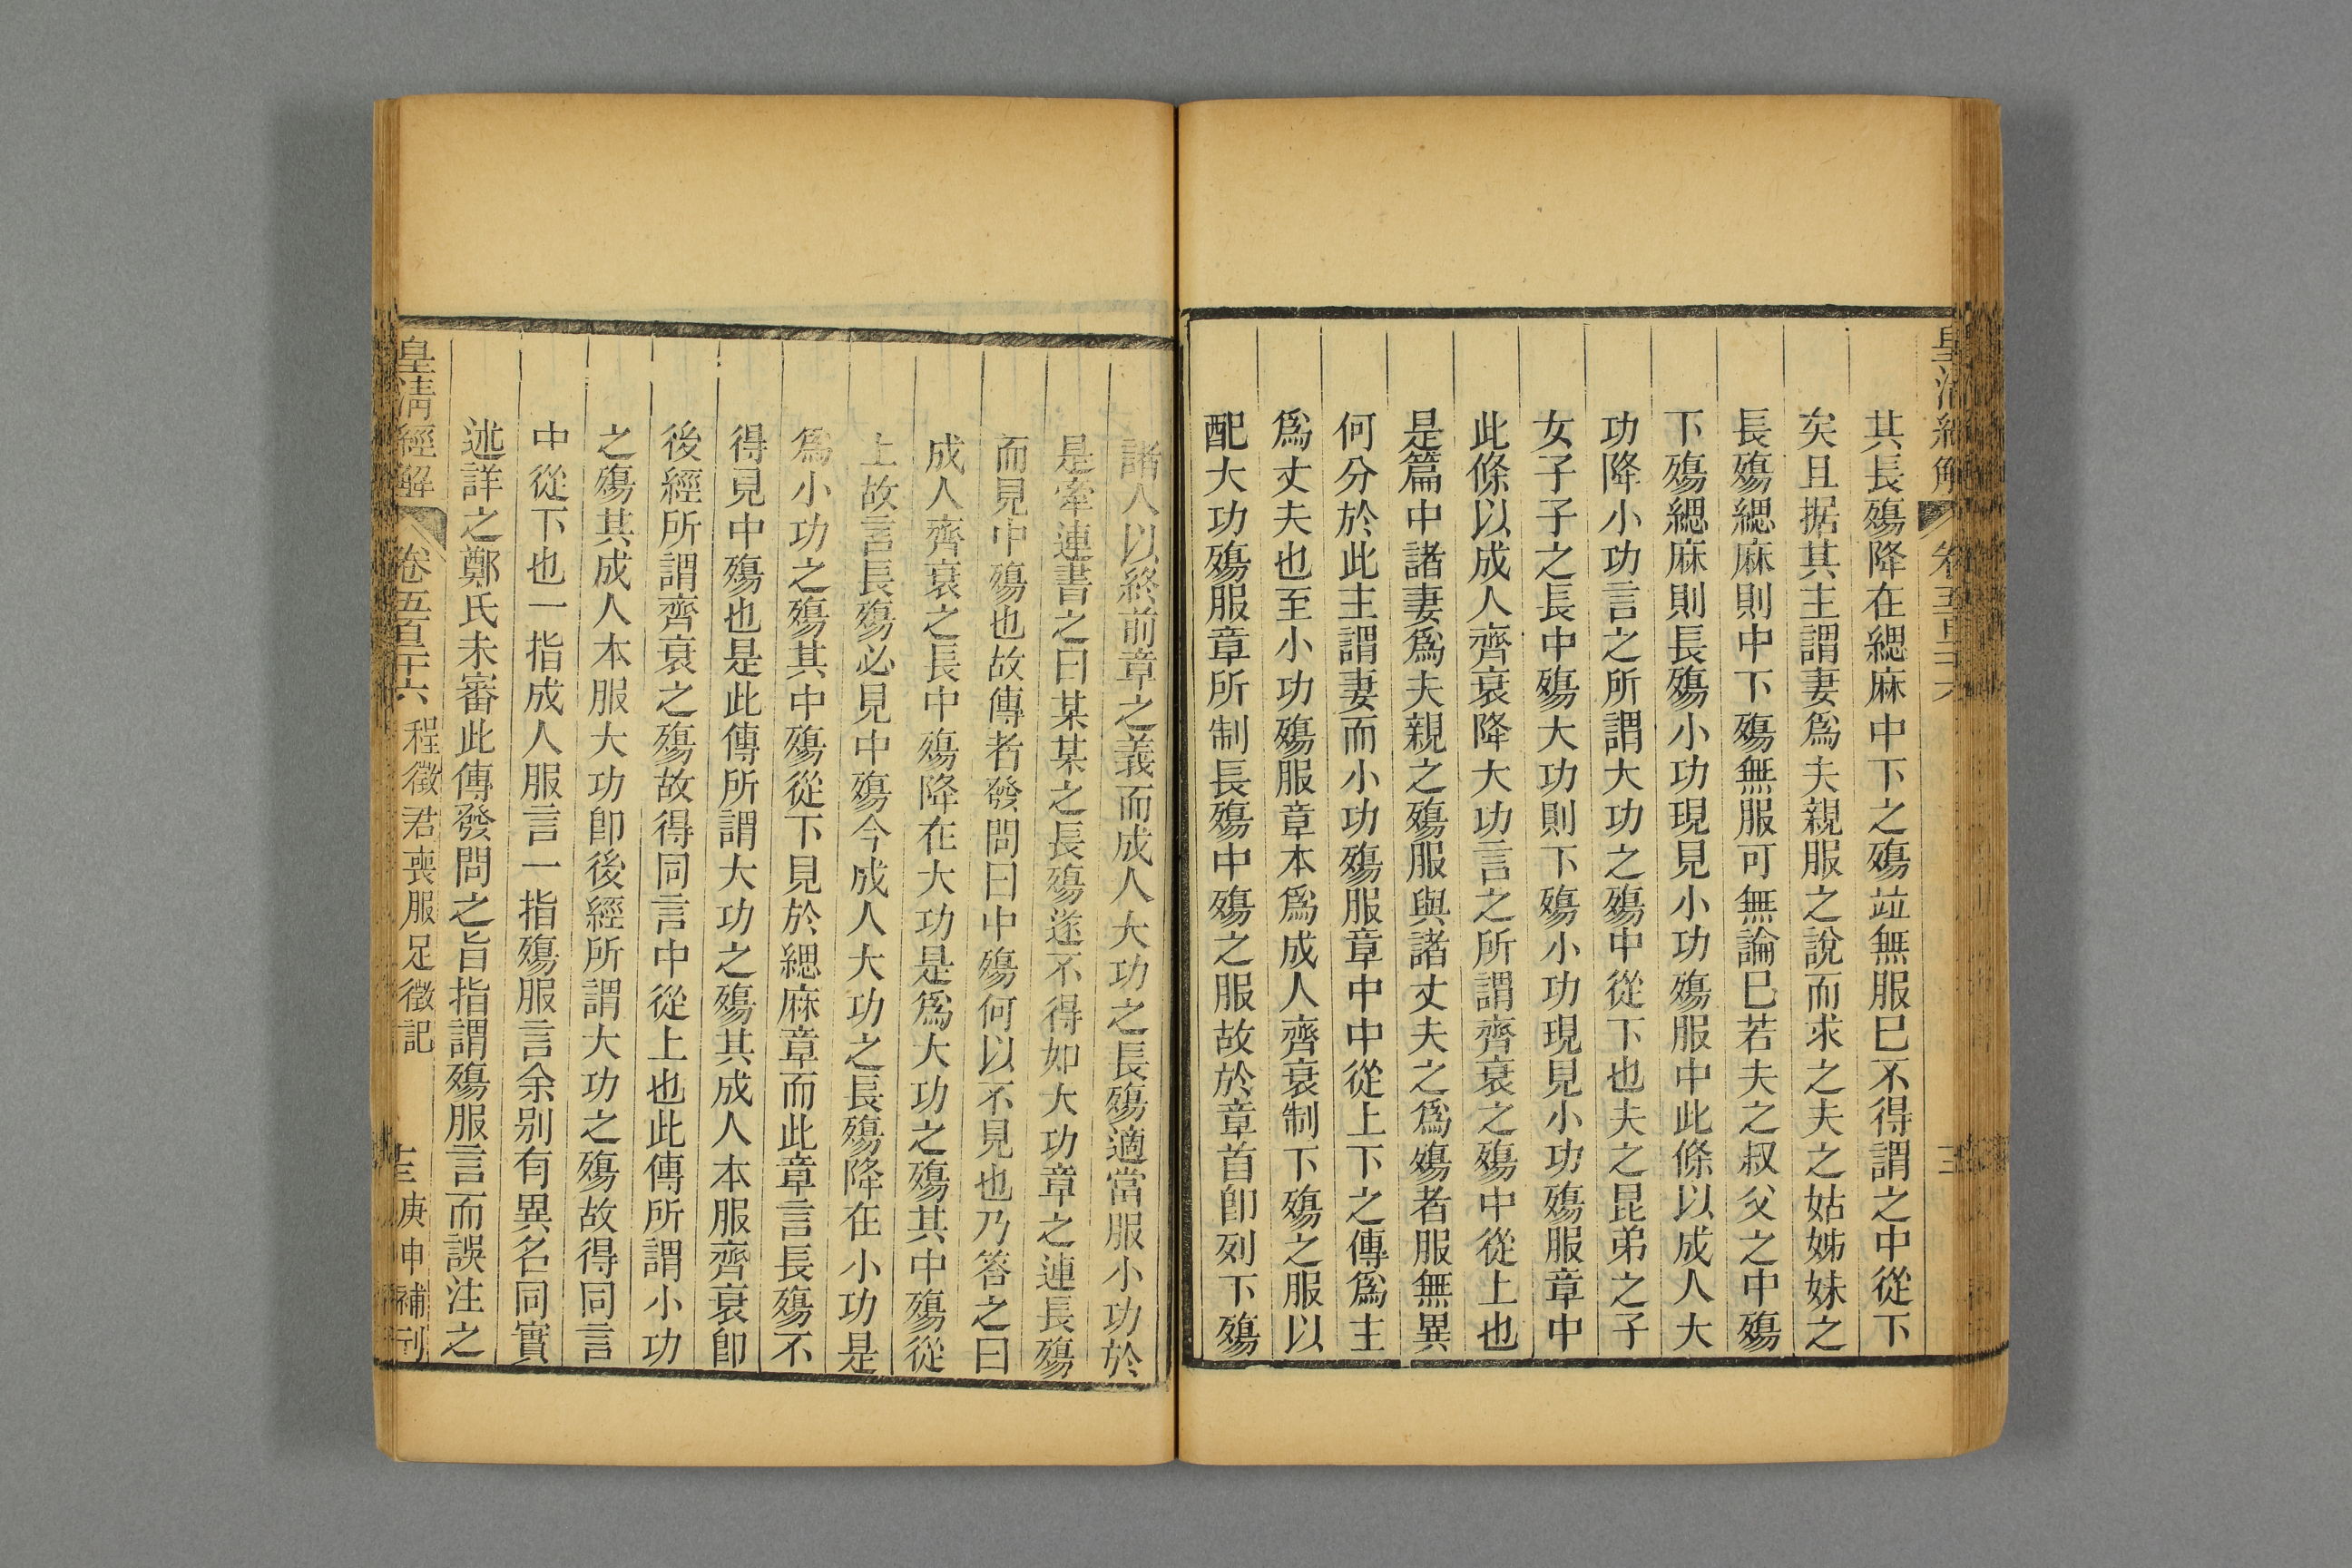 皇清經解 卷五百二十六 三
其長殤降在緦麻中下之殤竝無服巳不得謂之中從下
矣且据其主謂妻爲夫親服之說而求之夫之姑姊妹之
長殤緦麻則中下殤無服可無論巳若夫之叔父之中殤
下殤緦麻則長殤小功現見小功殤服中此條以成人大
功降小功言之所謂大功之殤中從下也夫之昆弟之子
女子子之長中殤大功則下殤小功現見小功殤服章中
此條以成人齊衰降大功言之所謂齊衰之殤中從上也
是篇中諸妻爲夫親之殤服與諸丈夫之爲殤者服無異
何分於此主謂妻而小功殤服章中中從上下之傳爲主
爲丈夫也至小功殤服章本爲成人齊衰制下殤之服以
配大功殤服章所制長殤中殤之服故於章首卽列下殤
諸人以終前章之義而成人大功之長殤適當服小功於
是牽連書之曰某某之長殤遂不得如大功章之連長殤
而見中殤也故傳者發問曰中殤何以不見也乃答之曰
成人齊衰之長中殤降在大功是爲大功之殤其中殤從
上故言長殤必見中殤今成人大功之長殤降在小功是
爲小功之殤其中殤從下見於緦麻章而此章言長殤不
得見中殤也是此傳所謂大功之殤其成人本服齊衰卽
後經所謂齊衰之殤故得同言中從上也此傳所謂小功
之殤其成人本服大功卽後經所謂大功之殤故得同言
中從下也一指成人服言一指殤服言余別有異名同實
述詳之鄭氏未審此傳發問之旨指謂殤服言而誤注之
皇清經解 卷五百二十六 程徵君喪服足徵記 三 庚申補刊